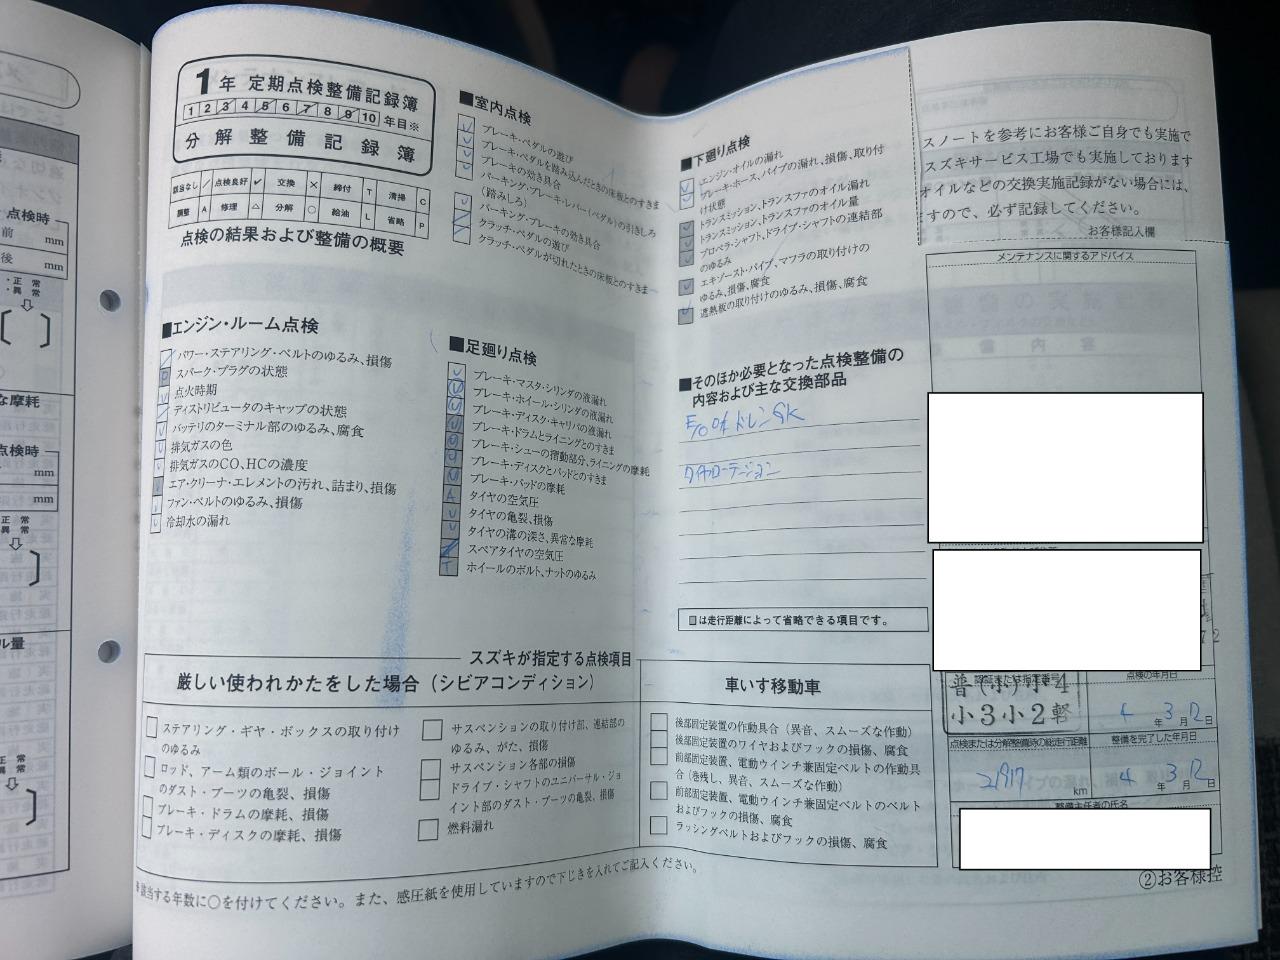 1年 定期点検整備記録簿
1 2 3 4 5 6 7 8 9 10 年目※
分解整備記録簿
該当なし ／ 点検良好 ✓ 交換 × 締付 T 清掃 C
調整 A 修理 △ 分解 ○ 給油 L 省略 P
点検の結果および整備の概要
■エンジン・ルーム点検
パワー・ステアリング・ベルトのゆるみ、損傷
スパーク・プラグの状態
点火時期
ディストリビュータのキャップの状態
バッテリのターミナル部のゆるみ、腐食
排気ガスの色
排気ガスのCO、HCの濃度
エア・クリーナ・エレメントの汚れ、詰まり、損傷
ファン・ベルトのゆるみ、損傷
冷却水の漏れ
■室内点検
ブレーキ・ペダルの遊び
ブレーキ・ペダルを踏み込んだときの床板とのすきま
ブレーキの効き具合
パーキング・ブレーキ・レバー(ペダル)の引きしろ
(踏みしろ)
パーキング・ブレーキの効き具合
クラッチ・ペダルの遊び
クラッチ・ペダルが切れたときの床板とのすきま
■足廻り点検
ブレーキ・マスタ・シリンダの液漏れ
ブレーキ・ホイール・シリンダの液漏れ
ブレーキ・ディスク・キャリパの液漏れ
ブレーキ・ドラムとライニングとのすきま
ブレーキ・シューの摺動部分、ライニングの摩耗
ブレーキ・ディスクとパッドとのすきま
ブレーキ・パッドの摩耗
タイヤの空気圧
タイヤの亀裂、損傷
タイヤの溝の深さ、異常な摩耗
スペアタイヤの空気圧
ホイールのボルト、ナットのゆるみ
■下廻り点検
エンジン・オイルの漏れ
ブレーキ・ホース、パイプの漏れ、損傷、取り付
け状態
トランスミッション、トランスファのオイル漏れ
トランスミッション、トランスファのオイル量
プロペラ・シャフト、ドライブ・シャフトの連結部
のゆるみ
エキゾースト・パイプ、マフラの取り付けの
ゆるみ、損傷、腐食
遮熱板の取り付けのゆるみ、損傷、腐食
■そのほか必要となった点検整備の
内容および主な交換部品
タイヤローテーション
は走行距離によって省略できる項目です。
スズキが指定する点検項目
厳しい使われかたをした場合(シビアコンディション)
ステアリング・ギヤ・ボックスの取り付け
のゆるみ
ロッド、アーム類のボール・ジョイント
のダスト・ブーツの亀裂、損傷
ブレーキ・ドラムの摩耗、損傷
ブレーキ・ディスクの摩耗、損傷
サスペンションの取り付け部、連結部の
ゆるみ、がた、損傷
サスペンション各部の損傷
ドライブ・シャフトのユニバーサル・ジョ
イント部のダスト・ブーツの亀裂、損傷
燃料漏れ
車いす移動車
後部固定装置の作動具合(異音、スムーズな作動)
後部固定装置のワイヤおよびフックの損傷、腐食
前部固定装置、電動ウインチ兼固定ベルトの作動具
合(巻残し、異音、スムーズな作動)
前部固定装置、電動ウインチ兼固定ベルトのベルト
およびフックの損傷、腐食
ラッシングベルトおよびフックの損傷、腐食
該当する年数に○を付けてください。また、感圧紙を使用していますので下じきを入れてご記入ください。
スノートを参考にお客様ご自身でも実施で
スズキサービス工場でも実施しております
オイルなどの交換実施記録がない場合には、
すので、必ず記録してください。
お客様記入欄
メンテナンスに関するアドバイス
普(小)小4
小3小2軽
点検の年月日
4年3月12日
点検または分解整備時の総走行距離
21917 km
整備を完了した年月日
4年3月12日
整備主任者の氏名
②お客様控
点検時
前 mm
後 mm
・正常
・異常
点検時
mm
mm
正常
異常
ル量
正常
異常